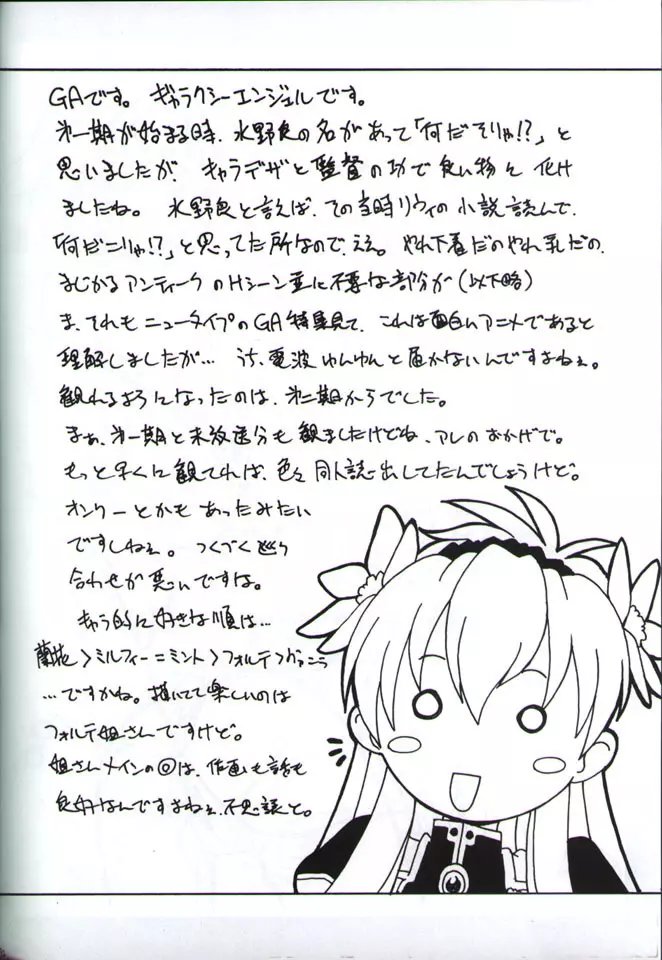 GAです。 ギャラクシーエンジェルです。
第一期が始まる時、水野良の名があって「何だそりゃ!?」と
思いましたが、キャラデザと監督の功で良い物に化け
ましたね。 水野良と言えば、その当時リウイの小説読んで、
「何だこりゃ!?」と思ってた所なので、ええ。 やれ下着だのやれ乳だの、
まじかるアンティークのHシーン並に不要な部分が(以下略)
ま、それもニュータイプのGA特集見て、これは面白いアニメであると
理解しましたが… うち、電波ゆんゆんと届かないんですよねぇ。
観れるようになったのは、第二期からでした。
まぁ、第一期と未放送分も観ましたけどね、アレのおかげで。
もっと早くに観てれば、色々同人誌出してたんでしょうけど。
オンリーとかもあったみたい
ですしねぇ。 つくづく巡り
合わせが悪いですな。
キャラ的に好きな順は…
蘭花>ミルフィー=ミント>フォルテ>ヴァニラ
…ですかね。描いてて楽しいのは
フォルテ姐さんですけど。
姐さんメインの回は、作画も話も
良好なんですよねぇ、不思議と。